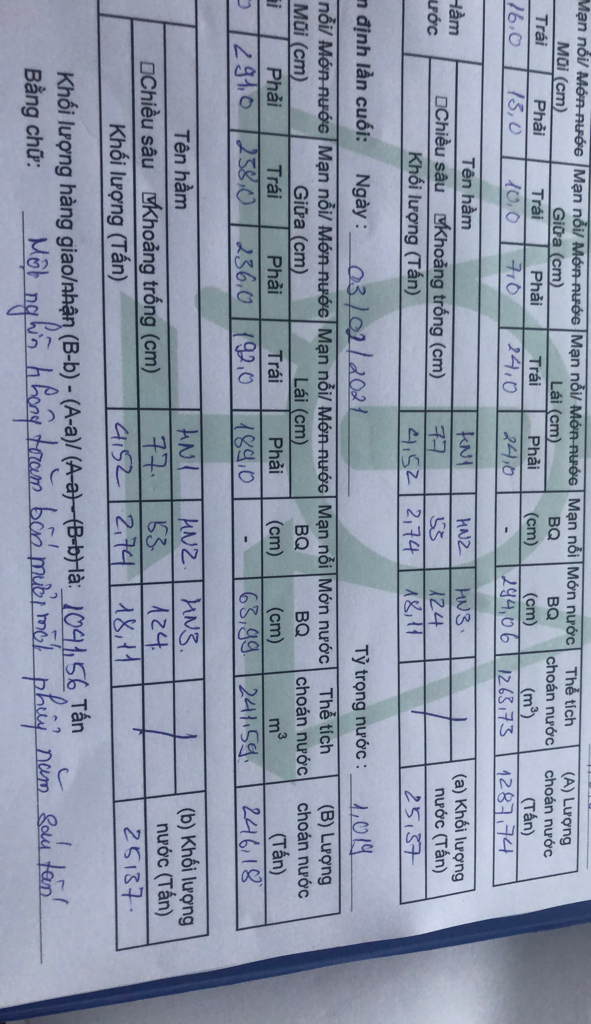 Mạn nổi/ Mớn nước Mạn nổi/ Mớn nước Mạn nổi/ Mớn nước Mạn nổi Mớn nước Thể tích (A) Lượng
Mũi (cm) Giữa (cm) Lái (cm) BQ BQ choán nước choán nước
Trái Phải Trái Phải Trái Phải (cm) (cm) (m³) (Tấn)
16,0 13,0 10,0 7,0 24,0 24,0 - 294,06 1263,73 1287,74
Hầm Tên hầm HN1 HN2 HN3. / (a) Khối lượng
nước □Chiều sâu ☑Khoảng trống (cm) 77 53 124 nước (Tấn)
Khối lượng (Tấn) 4,52 2,74 18,11 25,37
định lần cuối: Ngày: 03/02/2021 Tỷ trọng nước: 1,019
nổi/ Mớn nước Mạn nổi/ Mớn nước Mạn nổi/ Mớn nước Mạn nổi Mớn nước Thể tích (B) Lượng
Mũi (cm) Giữa (cm) Lái (cm) BQ BQ choán nước choán nước
Phải Trái Phải Trái Phải (cm) (cm) m³ (Tấn)
291,0 258,0 236,0 192,0 189,0 - 63,99 241,59. 246,18
Tên hầm HN1 HN2. HN3. / (b) Khối lượng
□Chiều sâu ☑Khoảng trống (cm) 77. 53 124. nước (Tấn)
Khối lượng (Tấn) 4,52 2,74 18,11 25,37.
Khối lượng hàng giao/nhận (B-b) - (A-a)/ (A-a) - (B-b) là: 1041,56 Tấn
Bằng chữ: Một nghìn không trăm bốn mươi mốt phẩy năm sáu tấn